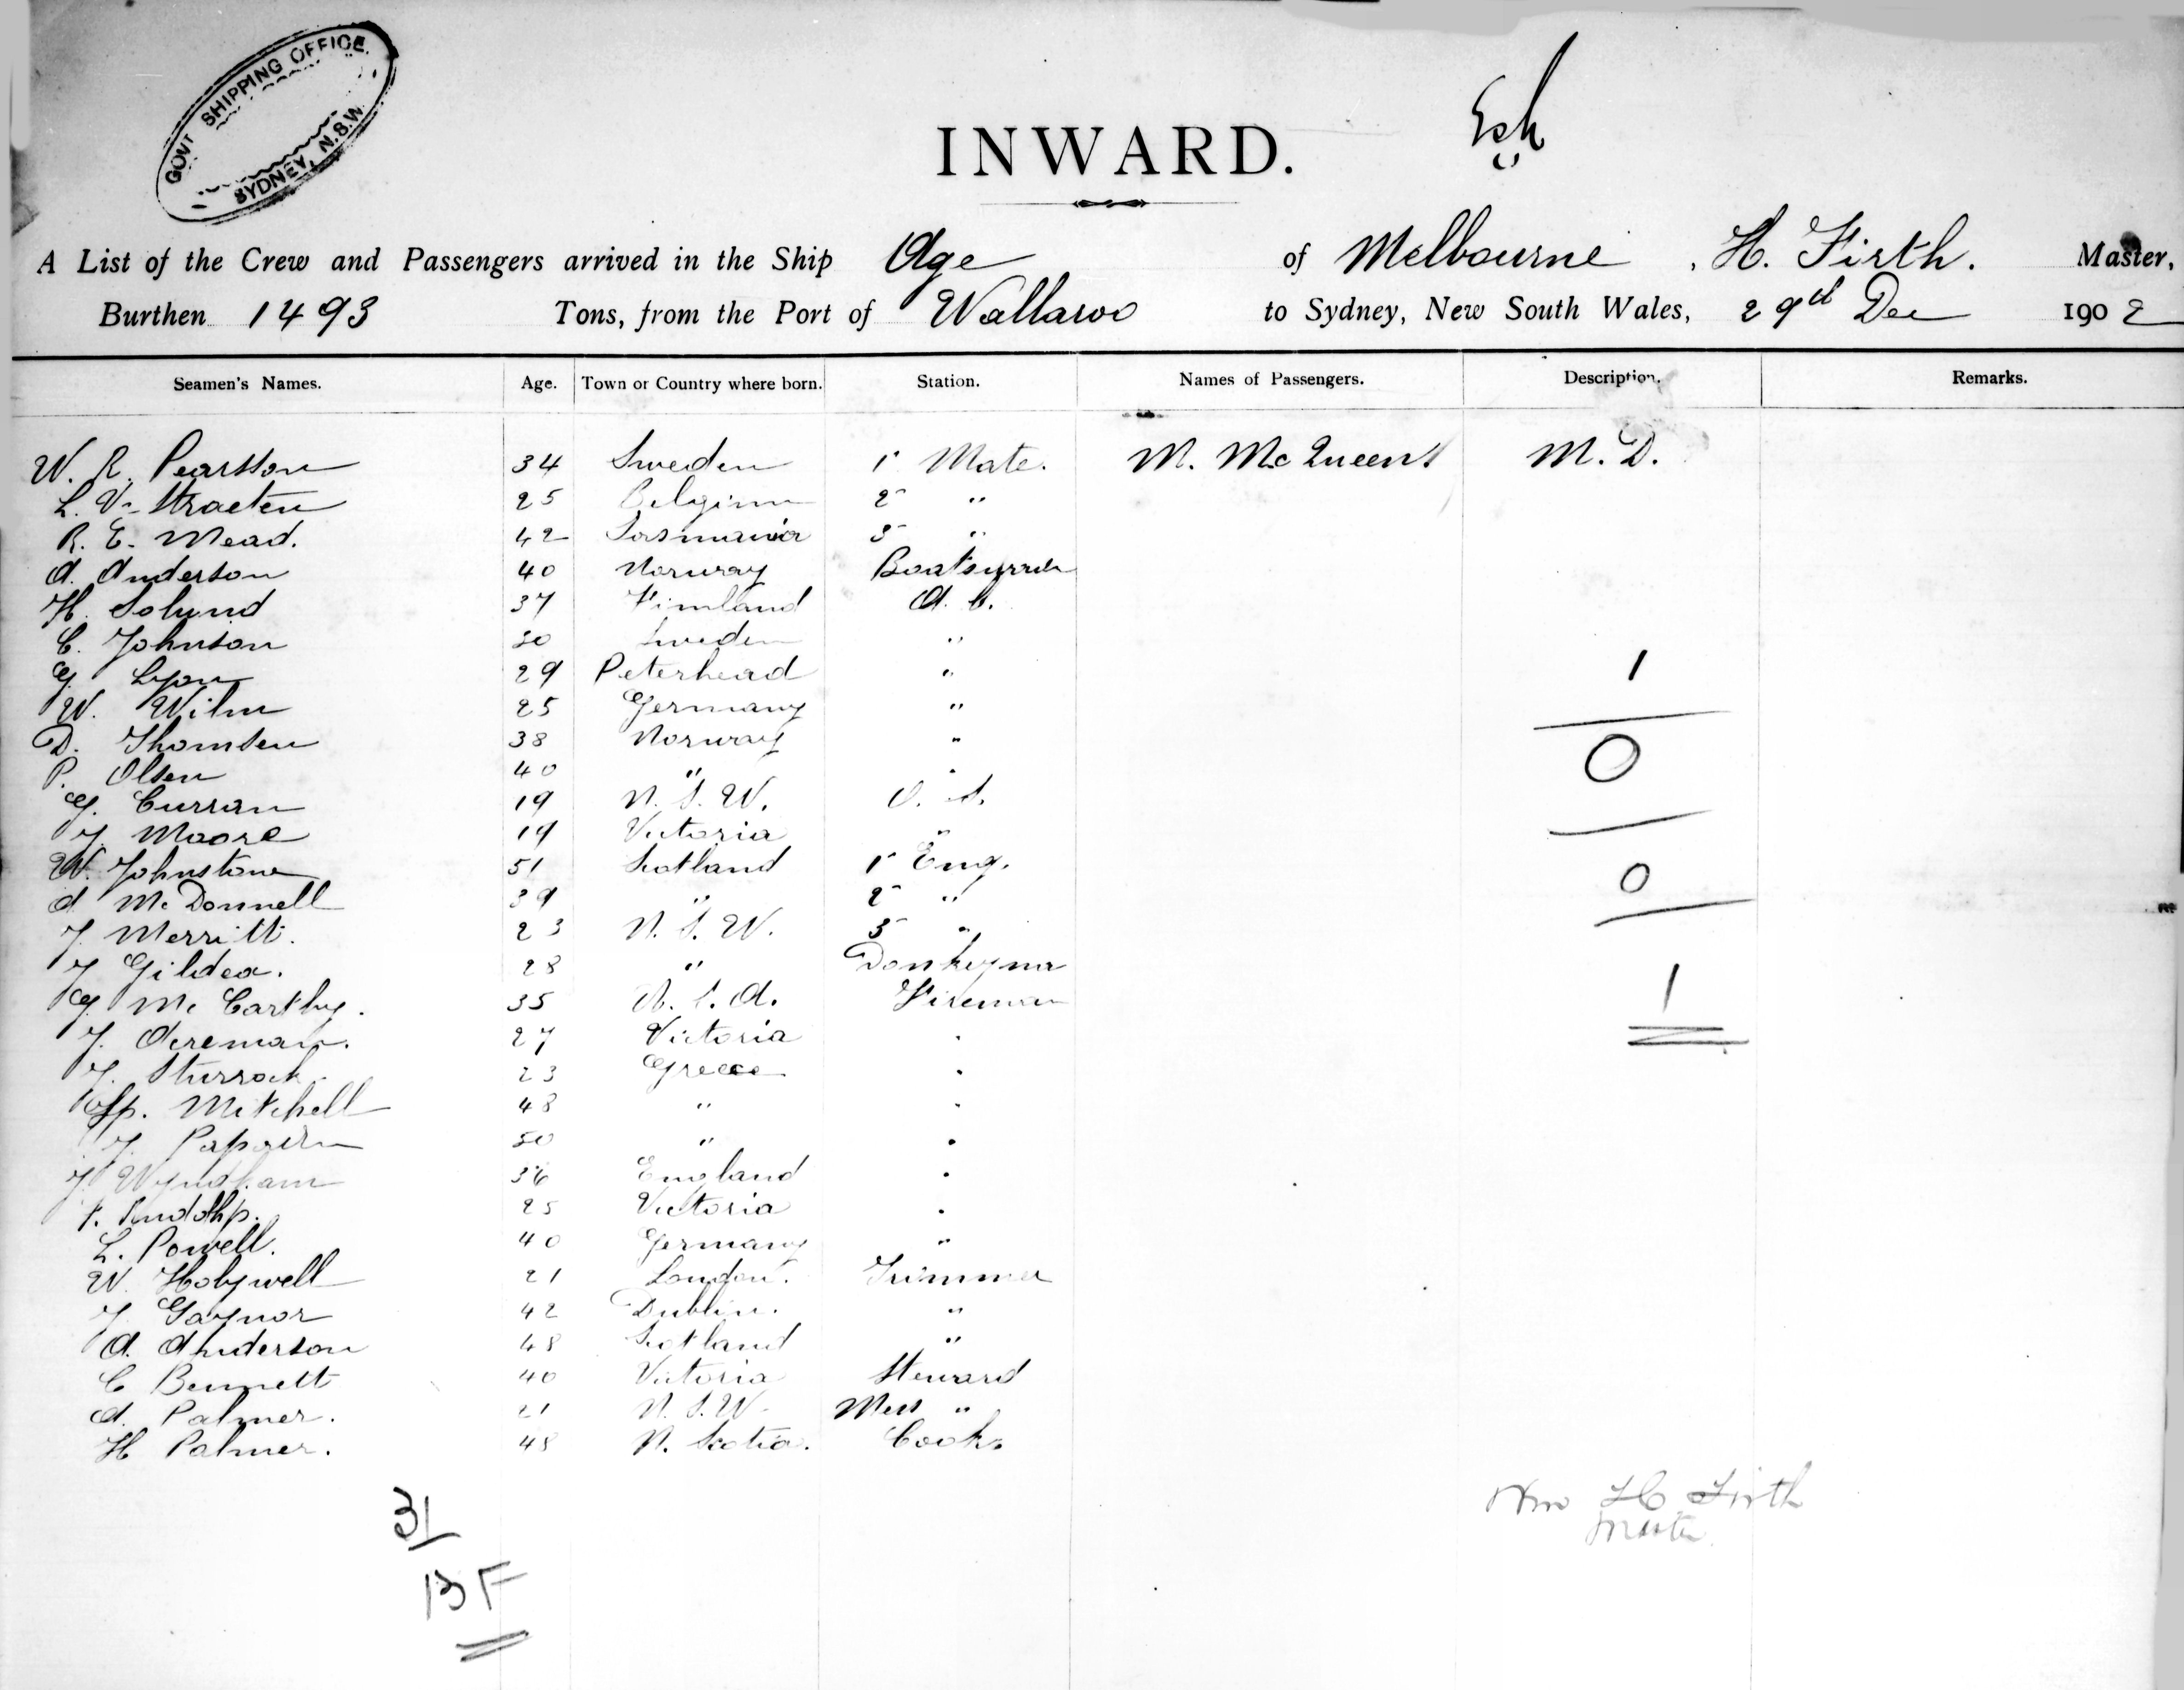 GOVT SHIPPING OFFICE.
SYDNEY, N.S.W.
INWARD.
A List of the Crew and Passengers arrived in the Ship Age of Melbourne, H. Firth. Master,
Burthen 1493 Tons, from the Port of Wallaroo to Sydney, New South Wales, 29th Dec 1902
Seamen's Names. Age. Town or Country where born. Station. Names of Passengers. Description. Remarks.
W. R. Pearsson 34 Sweden 1 Mate. M. McQueen M.D.
L. V. Straeten 25 Belgium 2 "
R. E. Mead. 42 Tasmania 3 "
A. Anderson 40 Norway Boatswain
H. Solund 37 Finland A. B.
C. Johnson 30 Sweden "
G. Lyon 29 Peterhead "
W. Wilm 25 Germany "
D. Thomsen 38 Norway "
P. Olsen 40 " "
G. Curran 19 N. S. W. O. S.
J. Moore 19 Victoria "
W. Johnstone 51 Scotland 1 Eng.
A McDonnell 39 " 2 "
J. Merritt. 23 N. S. W. 3 "
J Gildea. 28 " Donkeyman
G Mc Carthy. 35 U. S. A. Fireman
J. Acreman. 27 Victoria "
J. Sturrock. 23 Greece "
Sp. Mitchell 48 " "
J. 50 " "
J. Wyndham 36 England "
F. Rudolhp. 25 Victoria "
L. Powell. 40 Germany "
W. Holywell 21 London. Trimmer
J Gaynor 42 Dublin. "
A. Anderson 48 Scotland "
C Bennett 40 Victoria Steward
A. Palmer. 21 N. S. W. Mess "
H Palmer. 48 N. Scotia. Cook.
1
0
0
1
31
13 F
Wm H Firth
Master